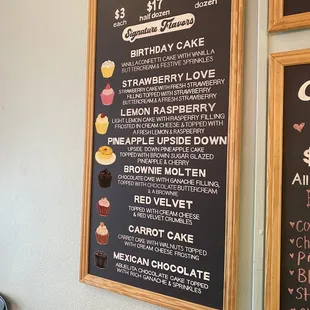 $3 $17
each half dozen dozen
Signature Flavors
BIRTHDAY CAKE
VANILLA CONFETTI CAKE WITH VANILLA
BUTTERCREAM & FESTIVE SPRINKLES
STRAWBERRY LOVE
STRAWBERRY CAKE WITH FRESH STRAWBERRY
FILLING TOPPED WITH STRAWBERRY
BUTTERCREAM & A FRESH STRAWBERRY
LEMON RASPBERRY
LIGHT LEMON CAKE WITH RASPBERRY FILLING
FROSTED IN CREAM CHEESE & TOPPED WITH
A FRESH LEMON & RASPBERRY
PINEAPPLE UPSIDE DOWN
UPSIDE DOWN PINEAPPLE CAKE
TOPPED WITH BROWN SUGAR GLAZED
PINEAPPLE & CHERRY
BROWNIE MOLTEN
CHOCOLATE CAKE WITH GANACHE FILLING,
TOPPED WITH CHOCOLATE BUTTERCREAM
& A BROWNIE
RED VELVET
TOPPED WITH CREAM CHEESE
& RED VELVET CRUMBLES
CARROT CAKE
CARROT CAKE WITH WALNUTS TOPPED
WITH CREAM CHEESE FROSTING
MEXICAN CHOCOLATE
ABUELITA CHOCOLATE CAKE TOPPED
WITH RICH GANACHE & SPRINKLES
All